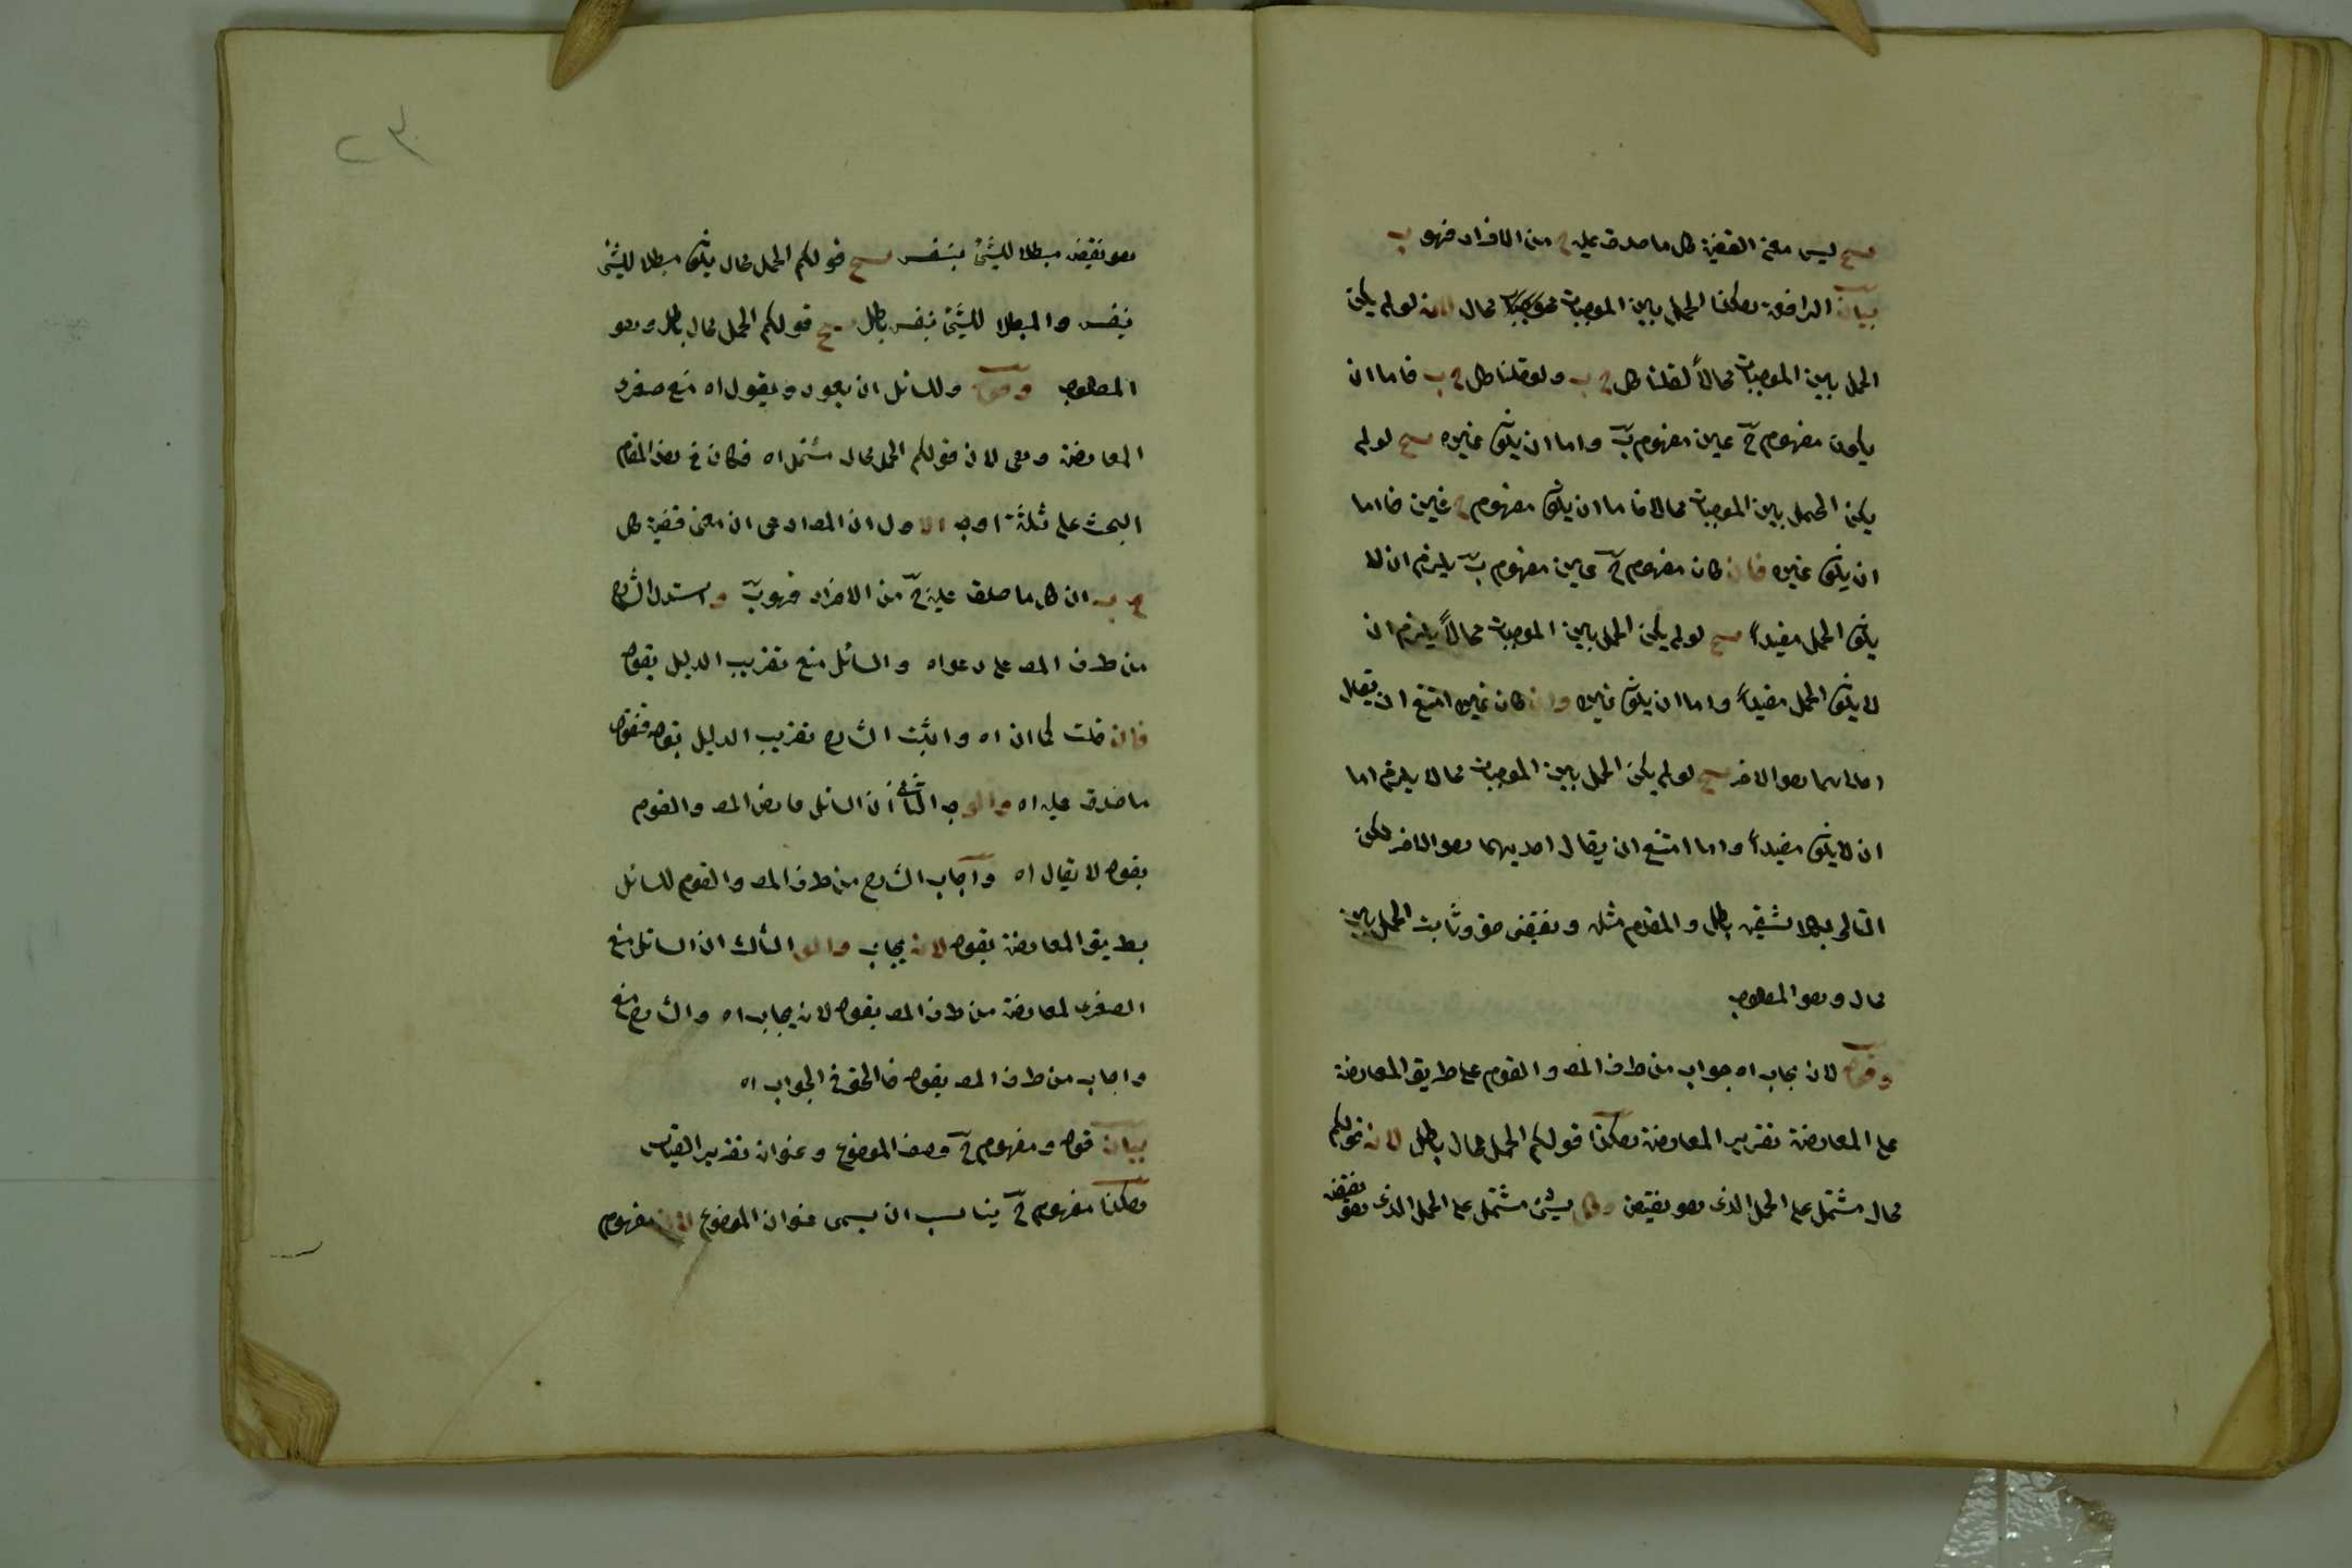 ينتج ليس معنى القضية كل ما صدق عليه ج من الافراد فهو ب
بيان الرافعة هكذا الحمل بين الموجبات محال لانه لو لم يكن
الحمل بين الموجبات محالاً لقلنا كل ج ب ولو قلنا كل ج ب فاما ان
يكون مفهوم ج عين مفهوم ب واما ان يكون غيره ينتج لو لم
يكن الحمل بين الموجبات محالا فاما ان يكون مفهوم ج عين فاما
ان يكون غيره فان كان مفهوم ج عين مفهوم ب يلزم ان لا
يكون الحمل مفيداً ينتج لو لم يكن الحمل بين الموجبات محالاً يلزم ان
لا يكون الحمل مفيداً واما ان يكون غيره وان كان غيره امتنع ان يقال
احدهما هو الاخر ينتج لو لم يكن الحمل بين الموجبات محالا يلزم اما
ان لا يكون مفيداً واما امتنع ان يقال احديهما هو الاخر لكن
التالى بكلا شقيه باطل والمقدم مثله ونقيضه حق وثابت الحمل بين
محال وهو المطلوب
وقوله لانه يجاب اه جواب من طرف المص والقوم على طريق المعارضة
على المعارضة تقرير المعارضة هكذا قولكم الحمل محال باطل لانه قولكم
محال مشتمل على الحمل الذى هو نقيضه وكل شيئ مشتمل على الحمل الذى هو نقيضه
هو نقيضه مبطلا للشئ بنفسه ينتج قولكم الحمل محال يكون مبطلا للشئ
بنفسه والمبطلا للشئ بنفسه باطل ينتج قولكم الحمل محال باطل وهو
المطلوب وقوله وللسائل ان يعود ويقول اه منع صغرى
المعارضة وهى لان قولكم الحمل محال مشتمل اه فكان فى هذا المقام
البحث على ثلثة اوجه الاول ان المص ادعى ان معنى قضية كل
ج ب ان كل ما صدق عليه ج من الافراد فهو ب واستدل الشارح
من طرف المص على دعواه والسائل منع تقريب الدليل بقوله
فان قلت كما ان اه واثبت الشارح تقريب الدليل بقوله فنقول
ما صدق عليه اه والوجه الثانى ان السائل عارض المص والقوم
بقوله لا يقال اه واجاب الشارح من طرف المص والقوم للسائل
بطريق المعارضة بقوله لانه يجاب والوجه الثالث ان السائل منع
الصغرى لمعارضة من طرف المص بقوله لانه يجاب اه والشارح منع
واجاب من طرف المص بقوله فالحق فى الجواب اه
بيان قوله ومفهوم ج وصف الموضوع وعنوان تقدير القياس
هكذا مفهوم ج يناسب ان يسمى عنوان الموضوع لان مفهوم
٢٣